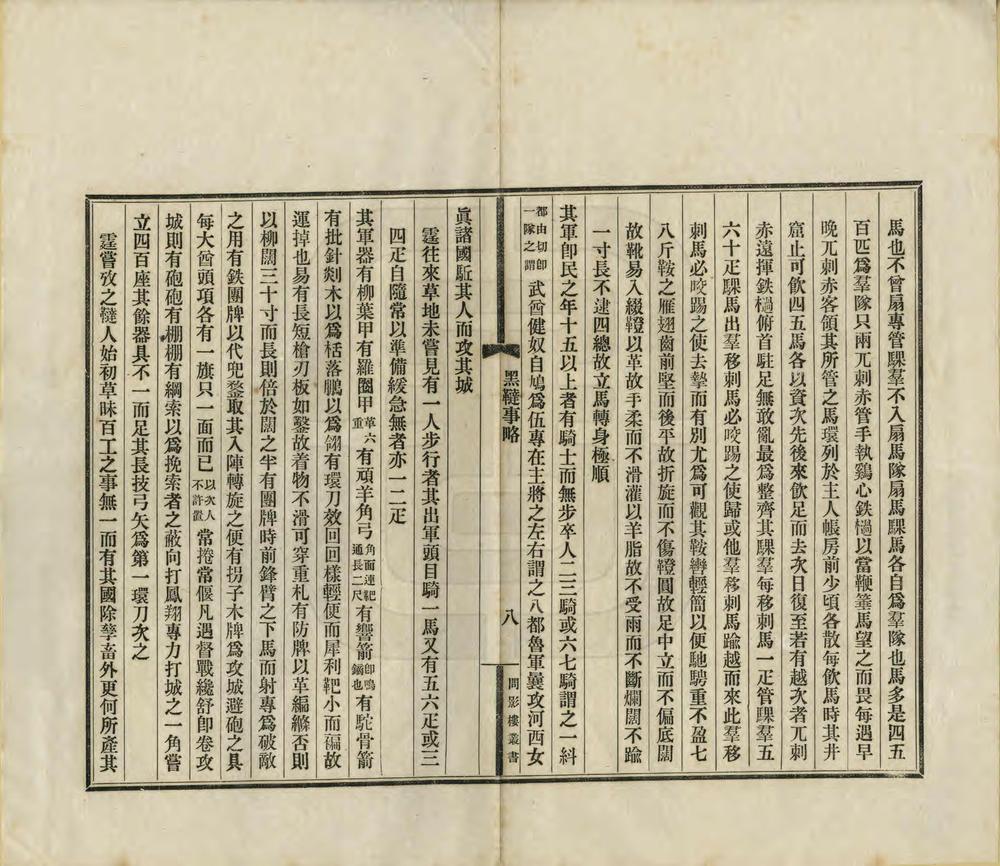 馬也不曾扇專管騍羣不入扇馬隊扇馬騍馬各自爲羣隊也馬多是四五
百匹爲羣隊只兩兀剌赤管手執鷄心鉄檛以當鞭箠馬望之而畏每遇早
晚兀剌赤各領其所管之馬環列於主人帳房前少頃各散每飲馬時其井
窟止可飲四五馬各以資次先後來飲足而去次日復至若有越次者兀剌
赤遠揮鉄檛俯首駐足無敢亂最爲整齊其騍羣每移剌馬一疋管騍羣五
六十疋騍馬出羣移剌馬必咬踢之使歸或他羣移剌馬踰越而來此羣移
剌馬必咬踢之使去摯而有別尤爲可觀其鞍轡輕簡以便馳騁重不盈七
八斤鞍之雁翅前竪而後平故折旋而不傷鐙圓故足中立而不偏底闊
故靴易入綴鐙以革故手柔而不滑灌以羊脂故不受雨而不斷爛闊不踰
一寸長不逮四總故立馬轉身極順
其軍卽民之年十五以上者有騎士而無步卒人二三騎或六七騎謂之一紏
都由切卽一隊之謂武酋健奴自鳩爲伍專在主將之左右謂之八都魯軍曩攻河西女
黑韃事略
八
問影樓叢書
眞諸國駈其人而攻其城
霆往來草地未嘗見有一人步行者其出軍頭目騎一馬又有五六疋或三
四疋自隨常以準備緩急無者亦一二疋
其軍器有柳葉甲有羅圈甲革六重有頑羊角弓角面連靶通長二尺有響箭卽鳴鏑也有駝骨箭
有批針剡木以爲栝落鵰以爲翎有環刀效回回樣輕便而犀利靶小而褊故
運掉也易有長短槍刃板如鑿故着物不滑可穿重札有防牌以革編絛否則
以柳闊三十寸而長則倍於闊之半有團牌時前鋒臂之下馬而射專爲破敵
之用有鉄團牌以代兜鍪取其入陣轉旋之便有拐子木牌爲攻城避砲之具
每大酋頭項各有一旗只一面而已以次人不許置常捲常偃凡遇督戰纔舒卽卷攻
城則有砲砲有棚棚有綱索以爲挽索者之蔽向打鳳翔專力打城之一角嘗
立四百座其餘器具不一而足其長技弓矢爲第一環刀次之
霆嘗攷之韃人始初草昧百工之事無一而有其國除孳畜外更何所產其